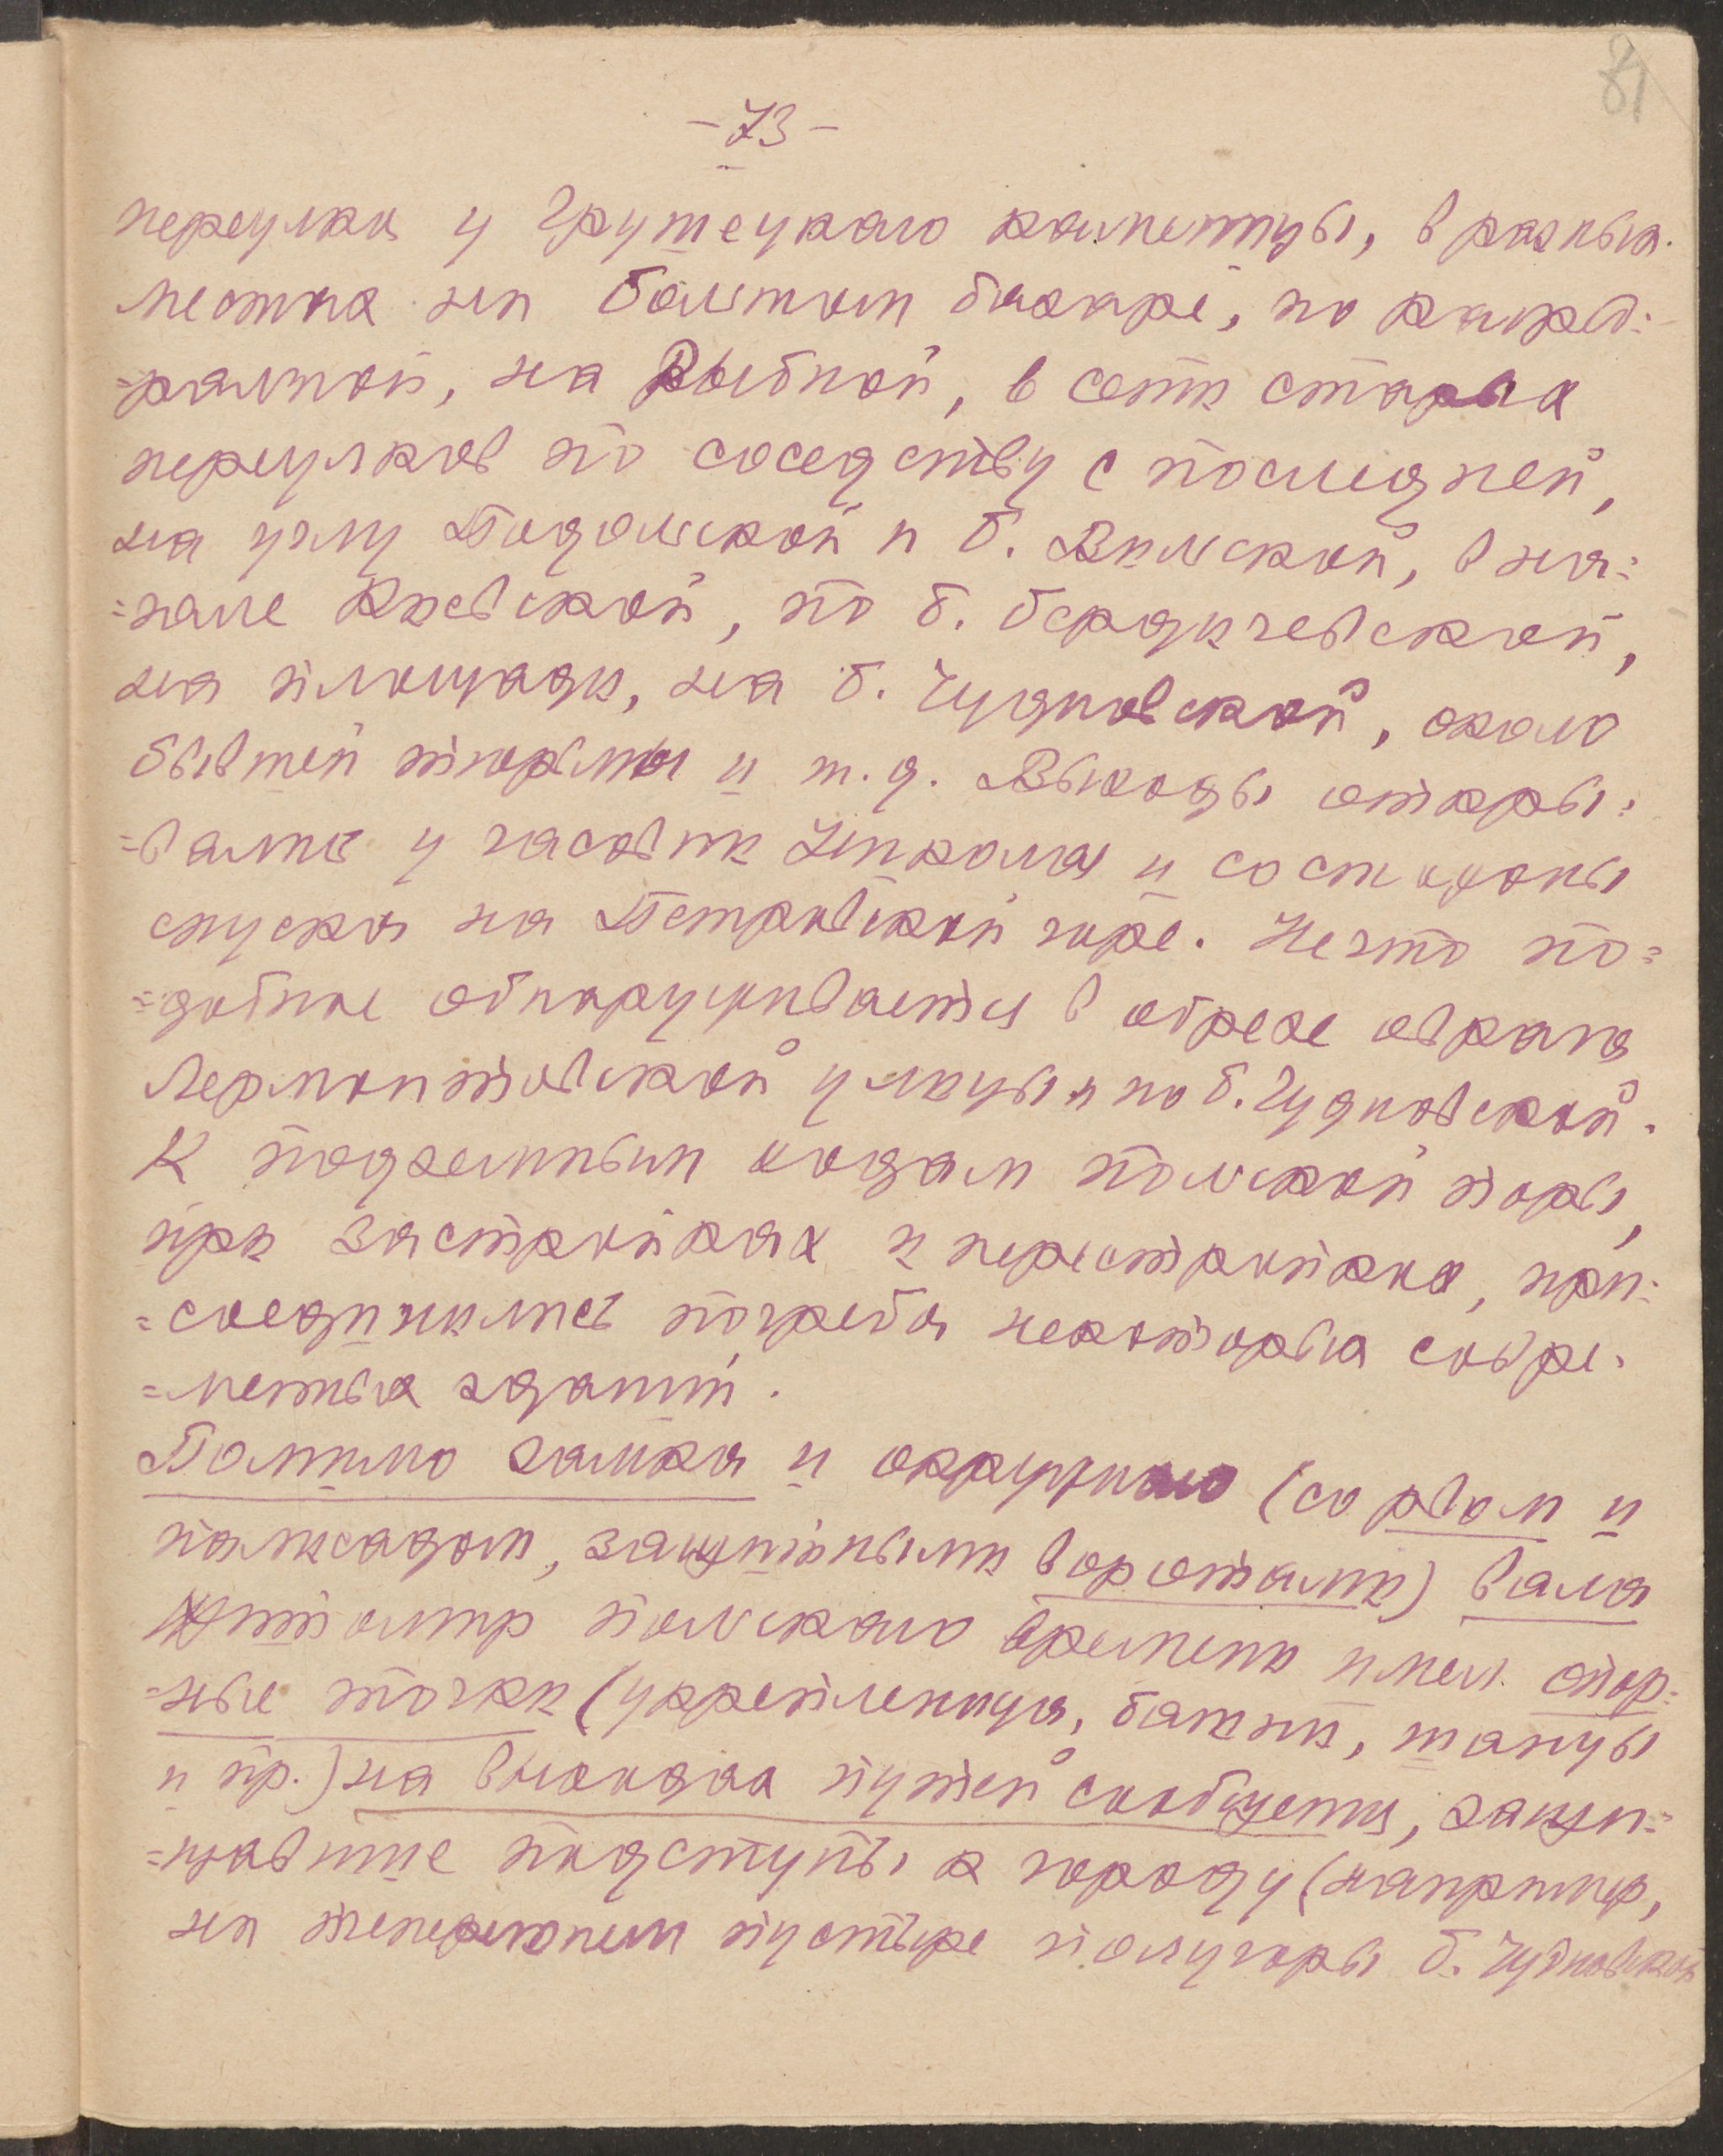 81
-73-
переулки у Грушецкаго каменицы, в разных
местах на большом базаре, по Кафед:
=ральной, на Рыбной, в сети старых
переулков по соседству с последней,
на углу Подольской и Б. Вильской, в на:
=чале Киевской, по Б. Бердичевской,
на площади, на Б. Чудновской, около
бывшей тюрьмы и т.д. Выходы откры:
=вались у часовни Николая и со стороны
спуска на Петровской горе. Нечто по=
=добное обнаруживается в обрезе оврага
Лермонтовской улицы и по Б. Чудновской.
К подземным ходам польской поры,
при застройках и перестройках, при:
=соединились погреба некоторых совре:
=менных зданий.
Помимо замка и окружнаго (со рвом и
палисадом, защитными воротами) вала
Житомир польскаго времени имел опор:
=ные точки (укрепленница, башни, шанцы
и пр.) на выходах путей сообщения, защи:
=щавшие подступы к городу (например,
на теперешнем пустыре полугоры Б. Чудновской